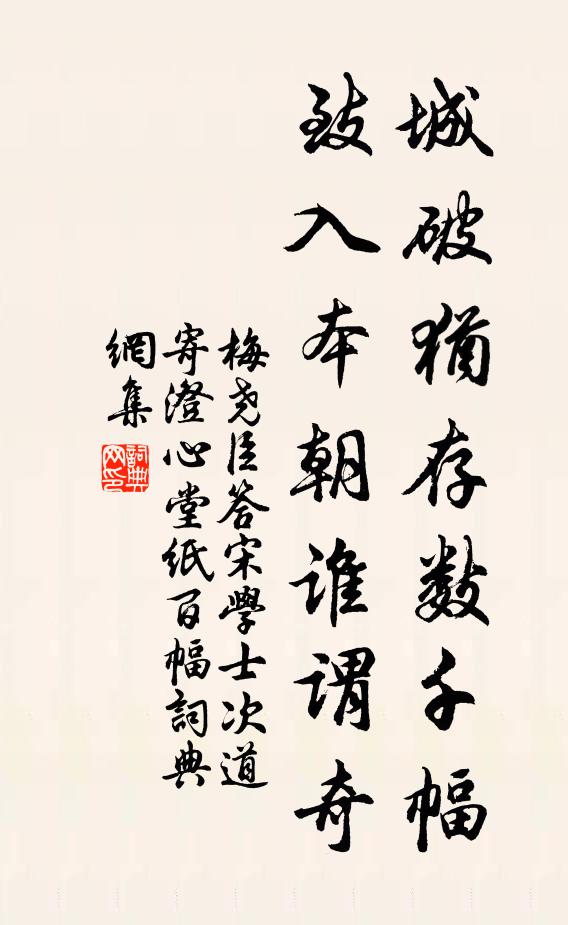 城破猶存數千幅
致入本朝誰謂奇
梅堯臣答宋學士次道
寄澄心堂紙百幅詞典
網集
詞典
网印